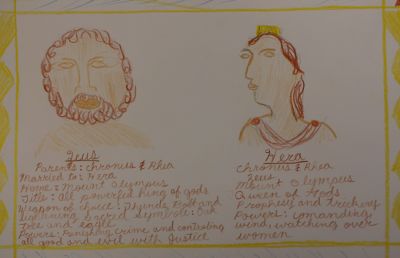 Zeus
Parents: chronus & Rhea
Married to: Hera
Home: Mount Olympus
Title: all powerful king of gods
Weapon of choice: Thunder Bolt and
lightning Sacred symbols: Oak
Tree and eagle
Powers: Punishing crime and controling
all good and evil with Justice
Hera
Chronus & Rhea
Zeus
Mount Olympus
Queen of Gods
Prophesy and Trickery
Powers: comanding
wind, watching over
women